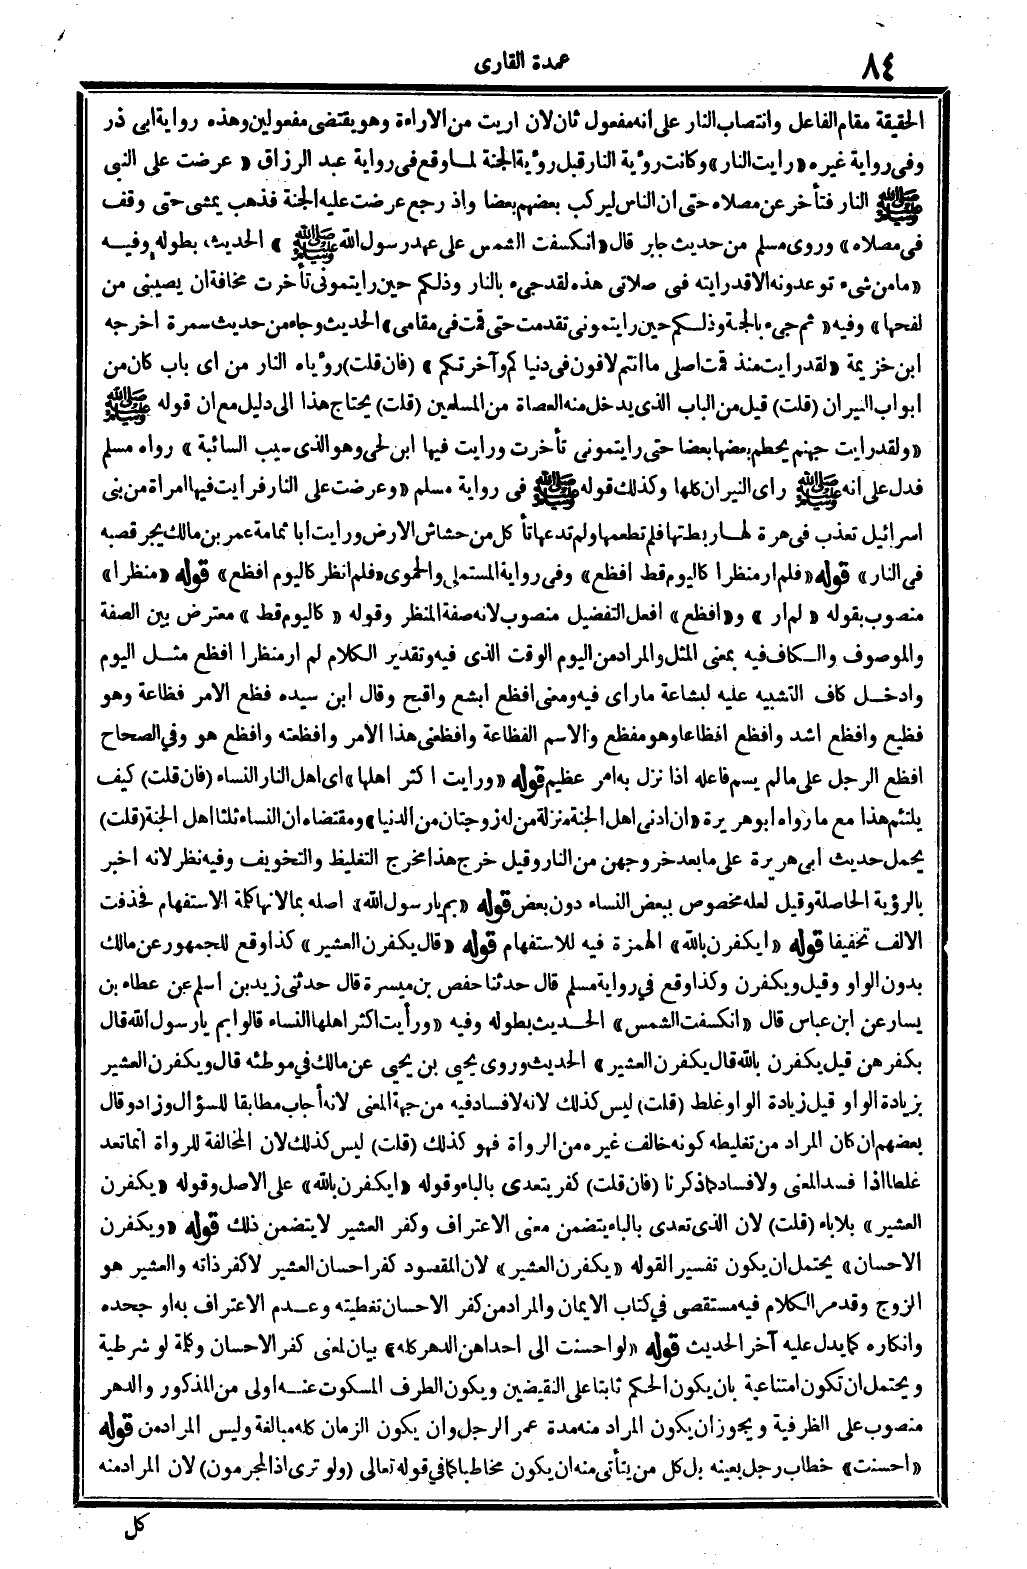 ٨٤
عمدة القارى
الحقيقة مقام الفاعل وانتصاب النار على انه مفعول ثان لان اريت من الاراءة وهو يقتضى مفعولين وهذه رواية ابى ذر
وفى رواية غيره «رايت النار» وكانت رؤية النار قبل رؤية الجنة لما وقع فى رواية عبد الرزاق « عرضت على النبى
ﷺ النار فتأخر عن مصلاه حتى ان الناس ليركب بعضهم بعضا واذ رجع عرضت عليه الجنة فذهب يمشى حتى وقف
فى مصلاه » وروى مسلم من حديث جابر قال «انكسفت الشمس على عهد رسول الله ﷺ » الحديث، بطوله وفيه
«ما من شىء توعدونه الا قد رايته فى صلاتى هذه لقد جىء بالنار وذلكم حين رايتمونى تأخرت مخافة ان يصيبنى من
لفحها» وفيه « ثم جىء بالجنة وذلكم حين رايتمونى تقدمت حتى قمت فى مقامى» الحديث وجاء من حديث سمرة اخرجه
ابن خزيمة «لقد رايت منذ قمت اصلى ما انتم لاقون فى دنياكم وآخرتكم » (فان قلت) رؤياه النار من اى باب كان من
ابواب النيران (قلت) قيل من الباب الذى يدخل منه العصاة من المسلمين (قلت) يحتاج هذا الى دليل مع ان قوله ﷺ
«ولقد رايت جهنم يحطم بعضها بعضا حتى رايتمونى تأخرت ورايت فيها ابن لحى وهو الذى سيب السائبة » رواه مسلم
فدل على انه ﷺ راى النيران كلها وكذلك قوله ﷺ فى رواية مسلم «وعرضت على النار فرايت فيها امراة من بنى
اسرائيل تعذب فى هرة لها ربطتها فلم تطعمها ولم تدعها تأكل من حشاش الارض ورايت ابا ثمامة عمر بن مالك يجر قصبه
فى النار» قوله «فلم ار منظرا كاليوم قط افظع» وفى رواية المستملى والحموى «فلم انظر كاليوم افظع» قوله «منظرا»
منصوب بقوله « لم ار » و«افظع» افعل التفضيل منصوب لانه صفة المنظر وقوله « كاليوم قط » معترض بين الصفة
والموصوف والكاف فيه بمعنى المثل والمراد من اليوم الوقت الذى فيه وتقدير الكلام لم ار منظرا افظع مثل اليوم
وادخل كاف التشبيه عليه لبشاعة ماراى فيه ومعنى افظع ابشع واقبح وقال ابن سيده فظع الامر فظاعة وهو
فظيع وافظع اشد وافظع افظاعا وهو مفظع والاسم الفظاعة وافظعنى هذا الامر وافظعته وافظع هو وفي الصحاح
افظع الرجل على مالم يسم فاعله اذا نزل به امر عظيم قوله «ورايت اكثر اهلها» اى اهل النار النساء (فان قلت) كيف
يلتئم هذا مع ما رواه ابو هريرة «ان ادنى اهل الجنة منزلة من له زوجتان من الدنيا» ومقتضاه ان النساء ثلثا اهل الجنة (قلت)
يحمل حديث ابى هريرة على ما بعد خروجهن من النار وقيل خرج هذا مخرج التغليظ والتخويف وفيه نظر لانه اخبر
بالرؤية الحاصلة وقيل لعله مخصوص ببعض النساء دون بعض قوله «بم يا رسول الله» اصله بما لانها كلمة الاستفهام فحذفت
الالف تخفيفا قوله «ايكفرن بالله» الهمزة فيه للاستفهام قوله «قال يكفرن العشير» كذا وقع للجمهور عن مالك
بدون الواو وقيل ويكفرن وكذا وقع في رواية مسلم قال حدثنا حفص بن ميسرة قال حدثنى زيد بن اسلم عن عطاء بن
يسار عن ابن عباس قال «انكسفت الشمس» الحديث بطوله وفيه «ورأيت اكثر اهلها النساء قالوا بم يا رسول الله قال
بكفرهن قيل يكفرن بالله قال يكفرن العشير» الحديث وروى يحيى بن يحيى عن مالك في موطئه قال ويكفرن العشير
بزيادة الواو قيل زيادة الواو غلط (قلت) ليس كذلك لانه لافساد فيه من جهة المعنى لانه أجاب مطابقا للسؤال وزاد وقال
بعضهم ان كان المراد من تغليطه كونه خالف غيره من الرواة فهو كذلك (قلت) ليس كذلك لان المخالفة للرواة انما تعد
غلطا اذا فسد المعنى ولا فساد كما ذكرنا (فان قلت) كفر يتعدى بالباء وقوله «ايكفرن بالله» على الاصل وقوله «يكفرن
العشير» بلا باء (قلت) لان الذى تعدى بالباء يتضمن معنى الاعتراف وكفر العشير لايتضمن ذلك قوله «ويكفرن
الاحسان» يحتمل ان يكون تفسيرا لقوله «يكفرن العشير» لان المقصود كفر احسان العشير لا كفر ذاته والعشير هو
الزوج وقد مر الكلام فيه مستقصى في كتاب الايمان والمراد من كفر الاحسان تغطيته وعدم الاعتراف به او جحده
وانكاره كما يدل عليه آخر الحديث قوله «لو احسنت الى احداهن الدهر كله» بيان لمعنى كفر الاحسان وكلمة لو شرطية
ويحتمل ان تكون امتناعية بان يكون الحكم ثابتا على النقيضين ويكون الطرف المسكوت عنه اولى من المذكور والدهر
منصوب على الظرفية ويجوز ان يكون المراد منه مدة عمر الرجل وان يكون الزمان كله مبالغة وليس المراد من قوله
«احسنت» خطاب رجل بعينه بل كل من يتأتى منه ان يكون مخاطبا كما في قوله تعالى (ولو ترى اذ المجرمون) لان المراد منه
كل